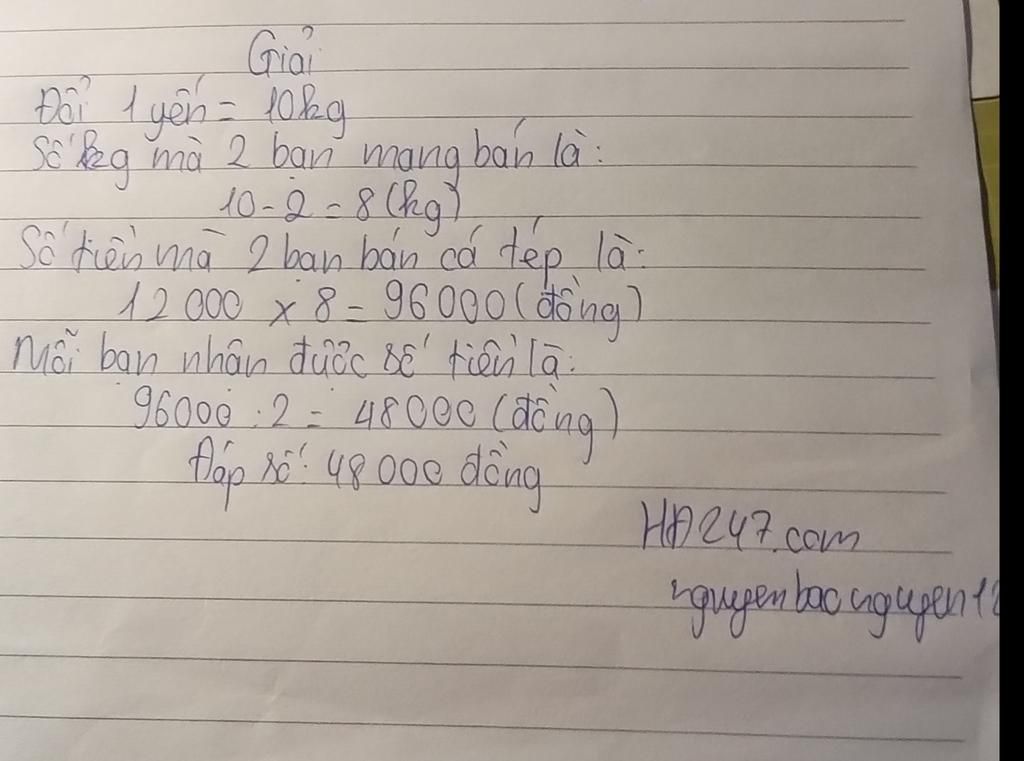 Giải
Đổi 1 yến = 10kg
Số kg mà 2 bạn mang bán là:
10 - 2 = 8 (kg)
Số tiền mà 2 bạn bán cá tép là:
12 000 x 8 = 96000 (đồng)
Mỗi bạn nhân được số tiền là:
96000 : 2 = 48000 (đồng)
Đáp số: 48 000 đồng
HĐ247.com
nguyenbacnguyen12